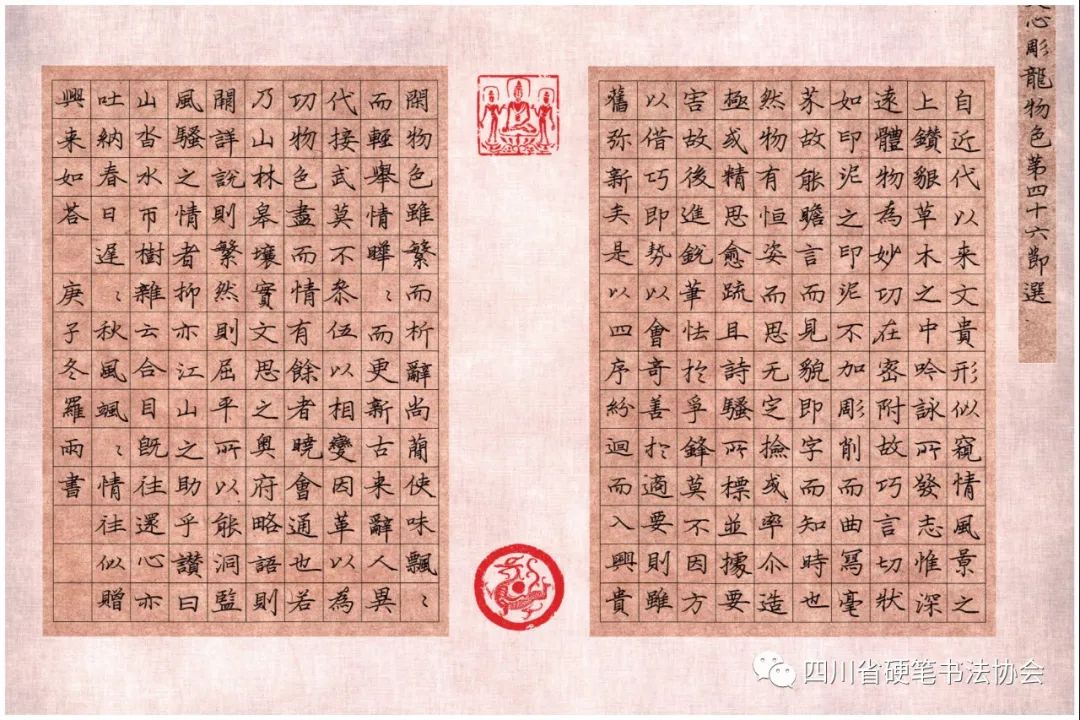 心彫龍物色第四十六節選
自近代以来文貴形似窺情風景之
上鑽貌草木之中吟詠所發志惟深
遠體物為妙功在密附故巧言切狀
如印泥之印泥不加彫削而曲寫毫
芥故能瞻言而見貌即字而知時也
然物有恒姿而思无定撿或率尒造
極或精思愈疏且詩騷所標並據要
害故後進銳筆怯扵爭鋒莫不因方
以借巧即勢以會奇善扵適要則雖
舊弥新矣是以四序紛迴而入興貴
閑物色雖繁而析辭尚蕳使味飄〻
而輕舉情曄〻而更新古来辭人異
代接武莫不叅伍以相變因革以為
功物色盡而情有餘者曉會通也若
乃山林皋壤實文思之奧府略語則
闕詳說則繁然則屈平所以能洞監
風騷之情者抑亦江山之助乎讚曰
山沓水帀樹雜云合目旣往還心亦
吐納春日遟〻秋風颯〻情往似贈
興来如荅 庚子冬羅雨書
四川省硬笔书法协会